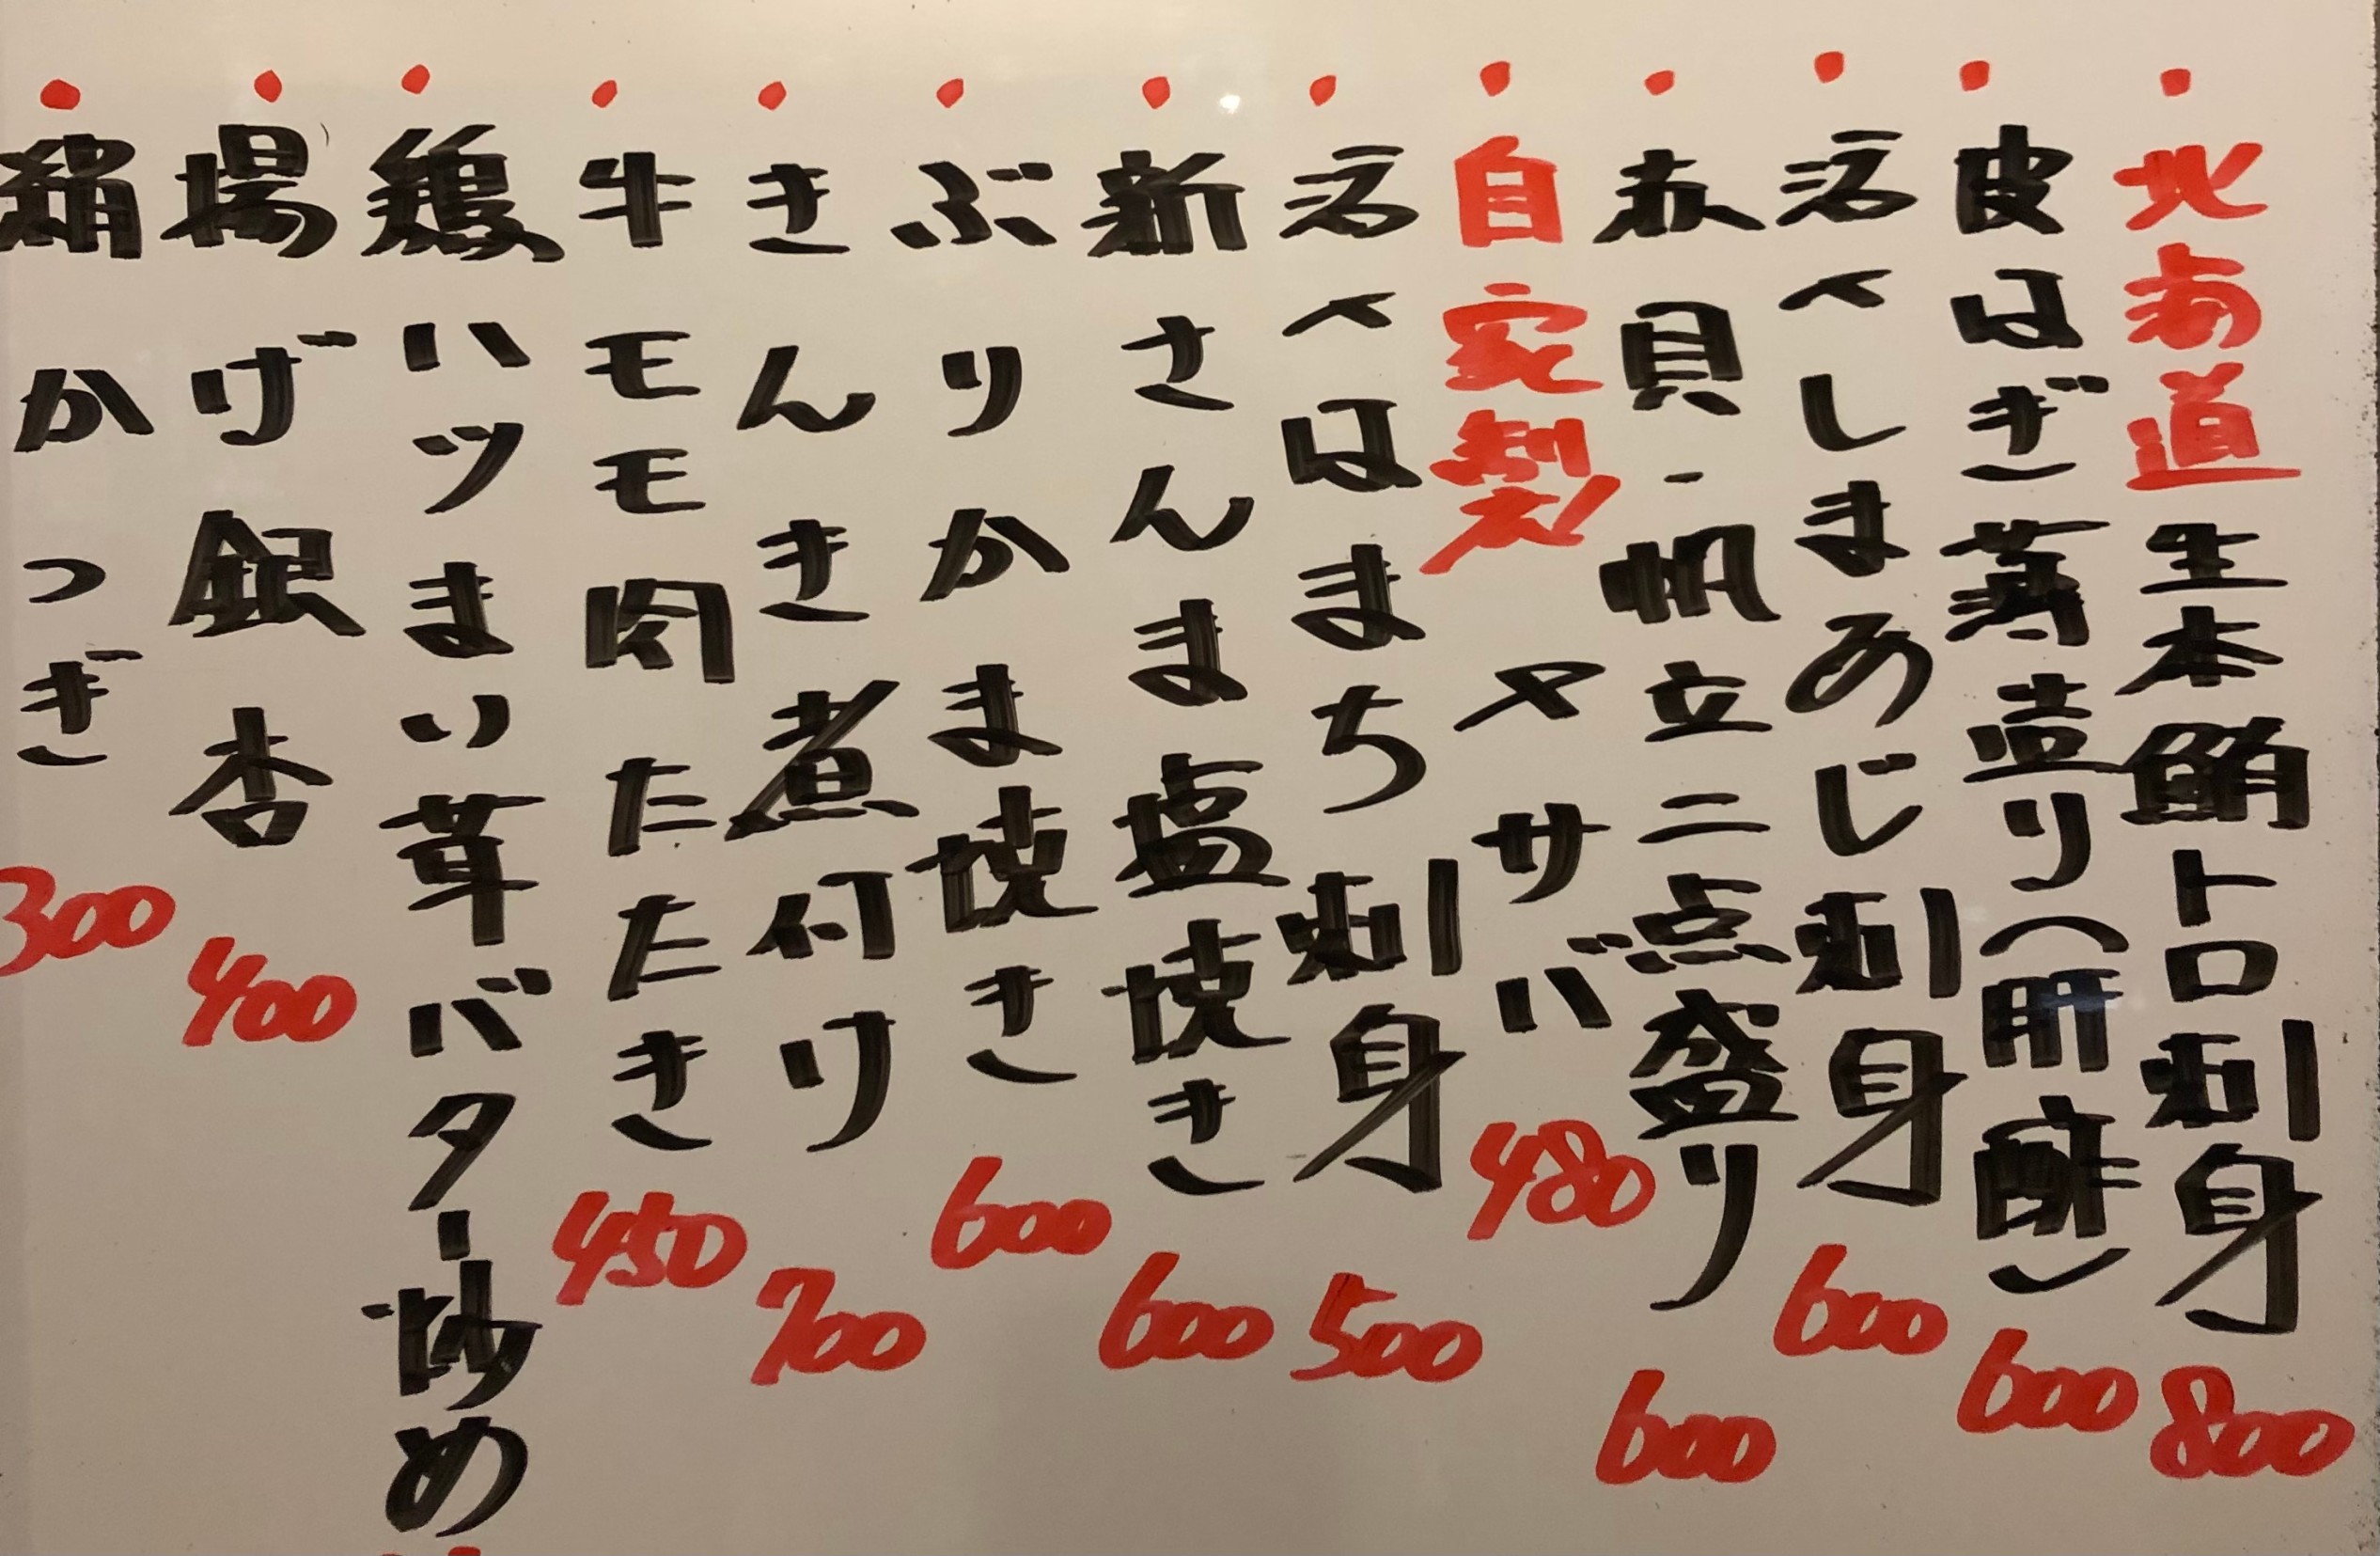 ・北海道生本鮪トロ刺身 800
・皮はぎ薄造り(肝醂) 600
・活〆しまあじ刺身 600
・赤貝・帆立二点盛り 600
・自家製〆サバ 480
・活〆はまち刺身 500
・新さんま塩焼き 600
・ぶりかま焼き 600
・きんき煮付け 700
・牛モモ肉たたき 450
・鶏ハツまい茸バター炒め
・揚げ銀杏 400
・絹かつぎ 300